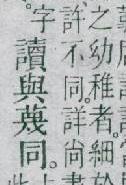 之幼稚者。細於
許不同。詳尚書
字讀與蔑同。